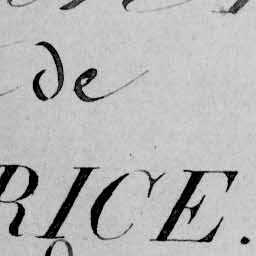 de
RICE.